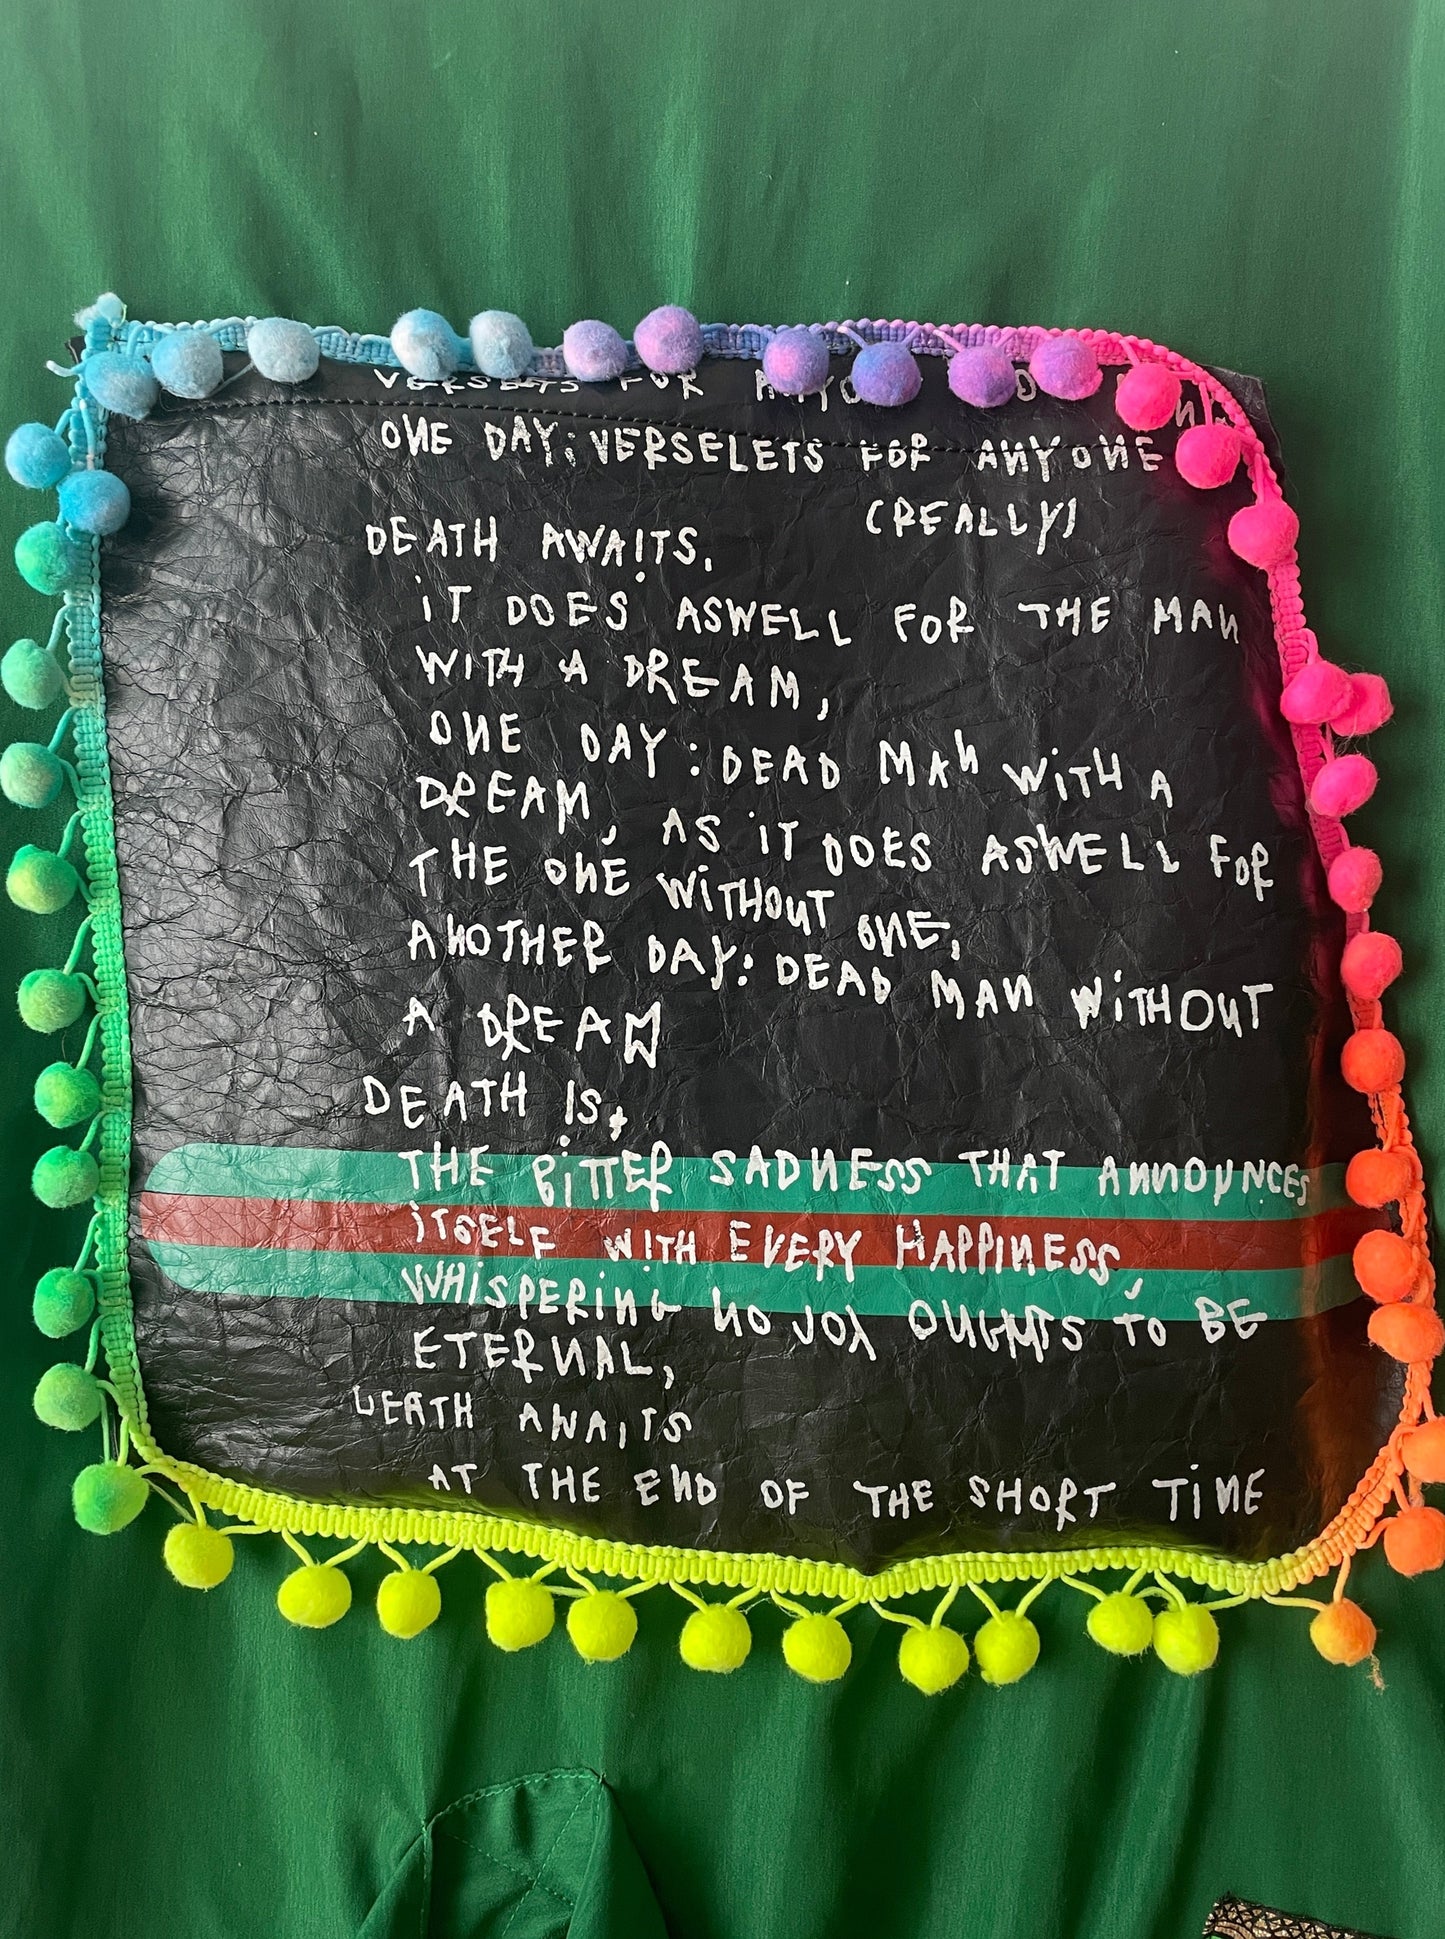 VERSELETS FOR
ONE DAY; VERSELETS FOR ANYONE
(REALLY)
DEATH AWAITS,
IT DOES ASWELL FOR THE MAN
WITH A DREAM,
ONE DAY: DEAD MAN WITH A
DREAM, AS IT DOES ASWELL FOR
THE ONE WITHOUT ONE,
ANOTHER DAY: DEAD MAN WITHOUT
A DREAM
DEATH IS,
THE BITTER SADNESS THAT ANNOUNCES
ITSELF WITH EVERY HAPPINESS,
WHISPERING NO JOY OUGHTS TO BE
ETERNAL,
DEATH AWAITS
AT THE END OF THE SHORT TIME